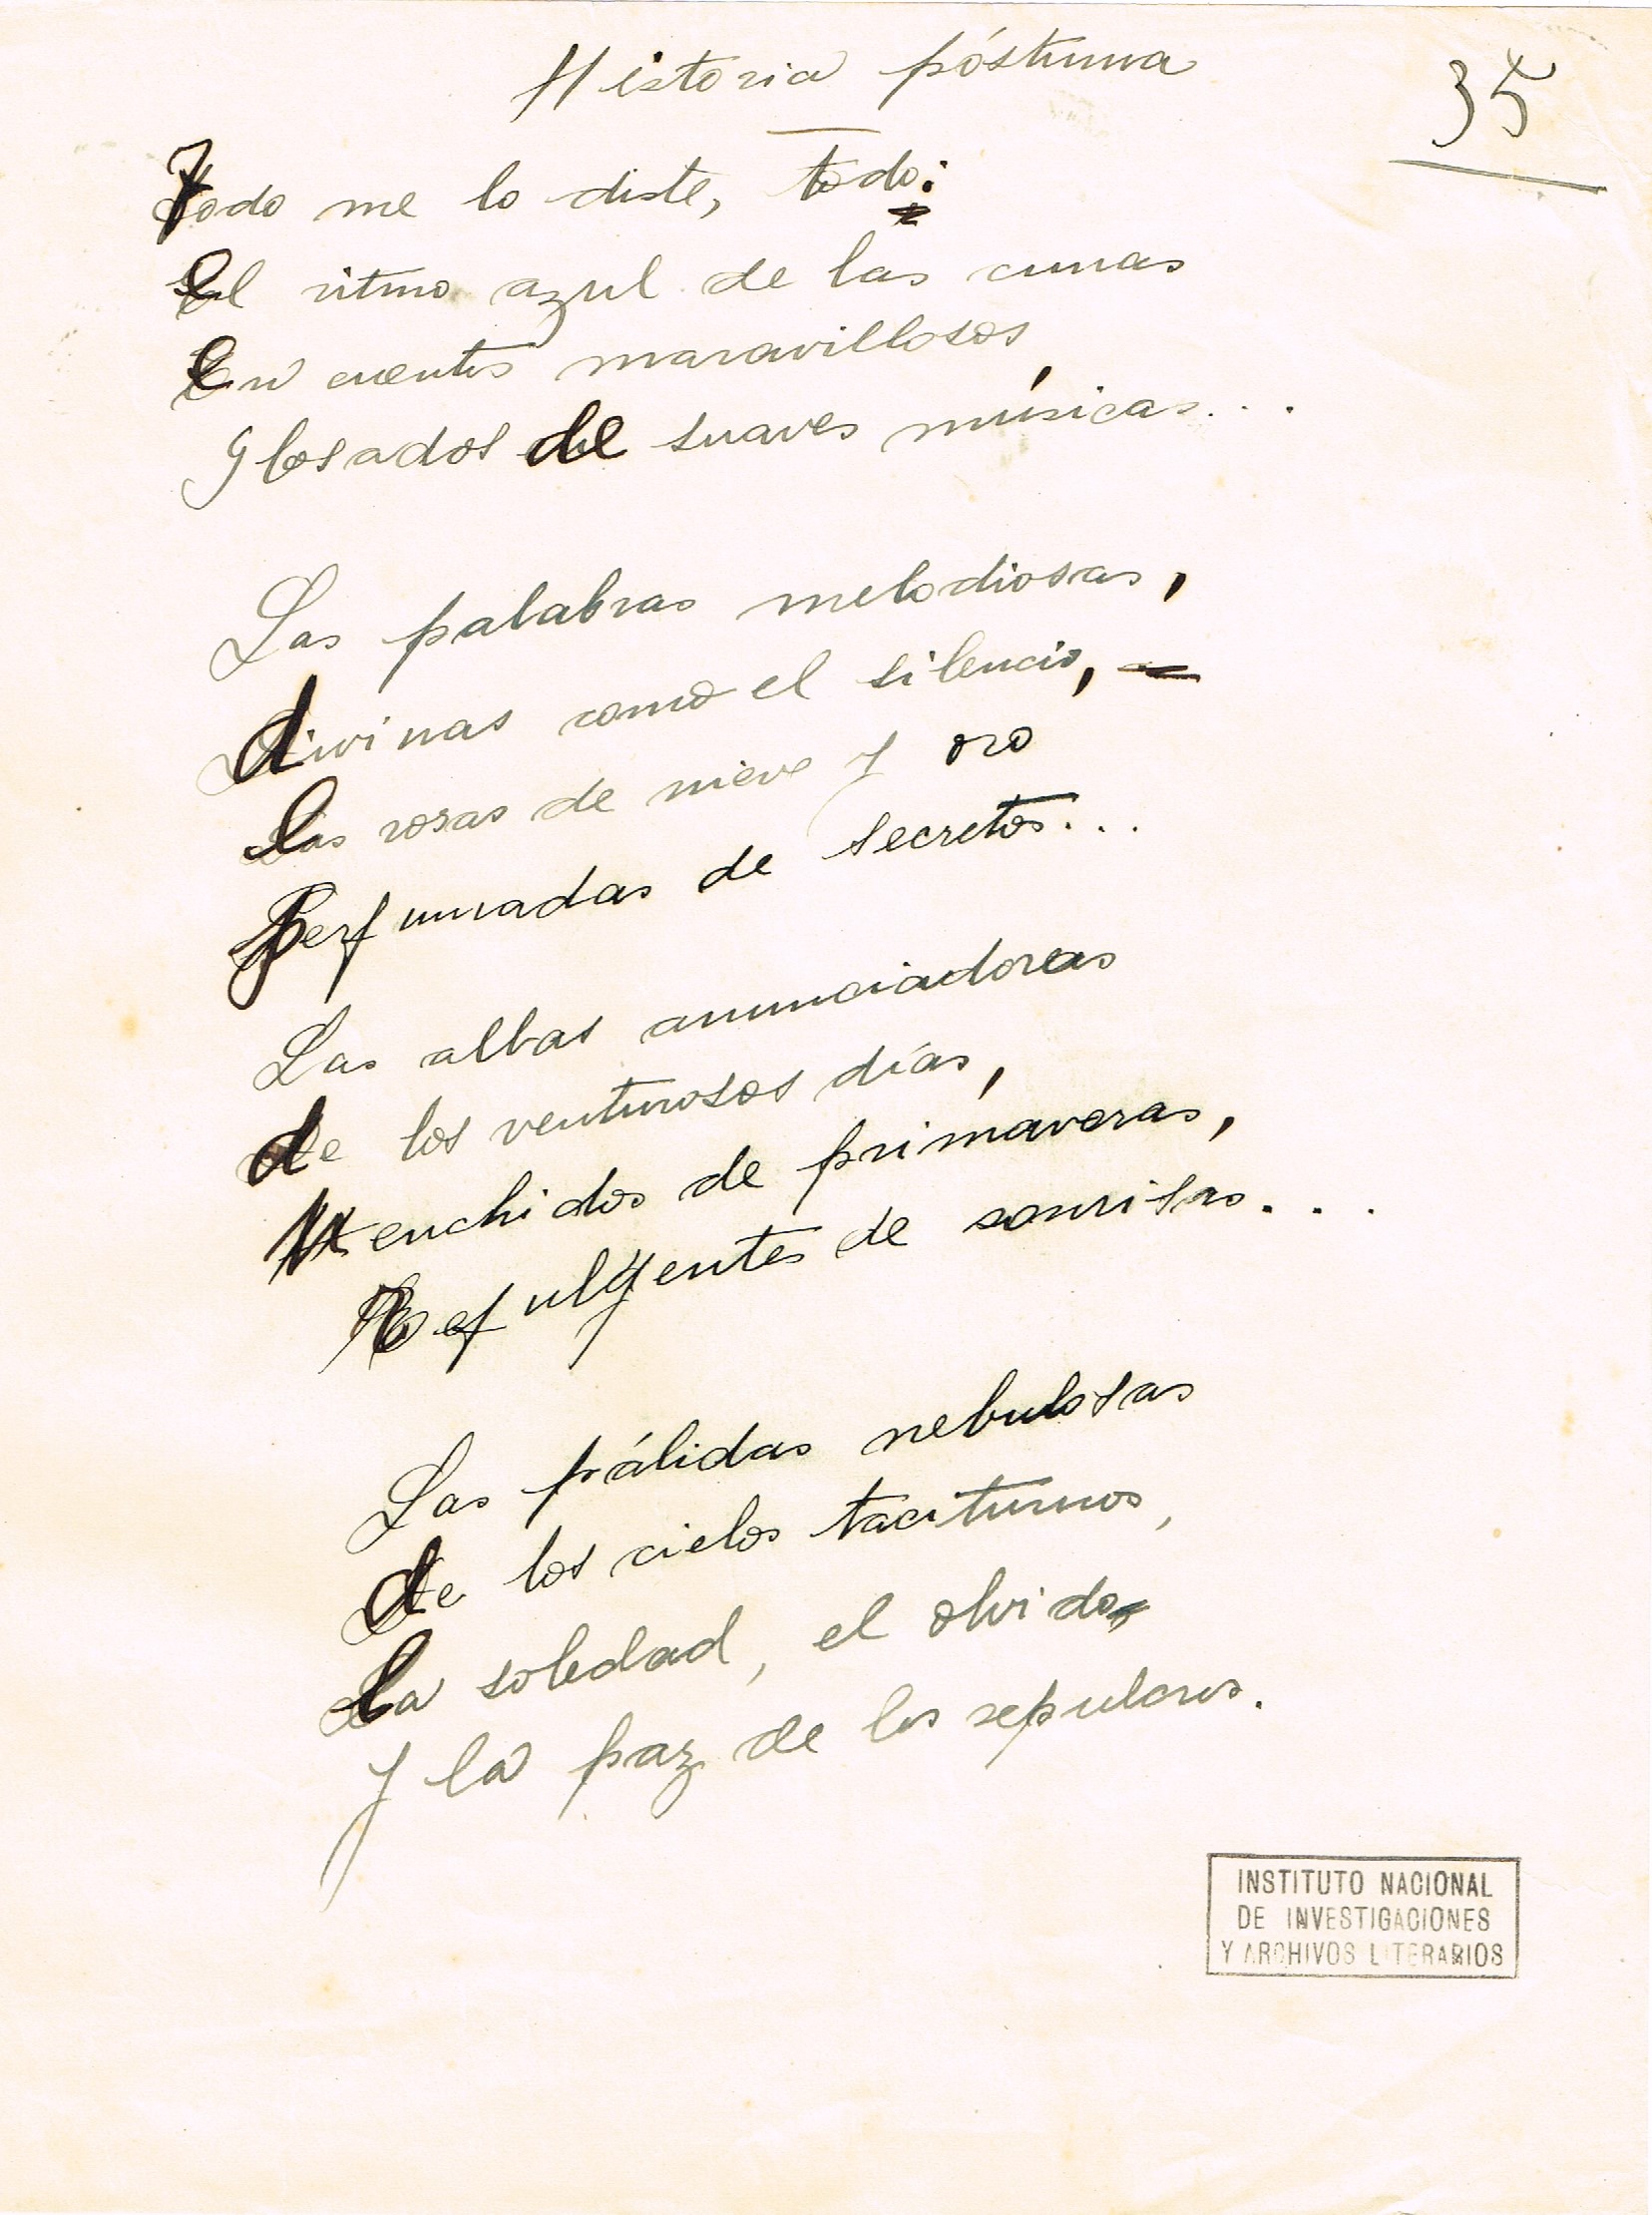 Historia póstuma
35
Todo me lo diste, todo:
el ritmo azul de las cunas
en cuentos maravillosos,
glosados de suaves músicas...
Las palabras melodiosas,
divinas como el silencio,
las rosas de nieve y oro
perfumadas de secretos...
Las albas anunciadoras
de los venturosos días,
henchidos de primaveras,
refulgentes de sonrisas...
Las pálidas nebulosas
de los cielos taciturnos,
la soledad, el olvido
y la paz de los sepulcros.
INSTITUTO NACIONAL
DE INVESTIGACIONES
Y ARCHIVOS LITERARIOS